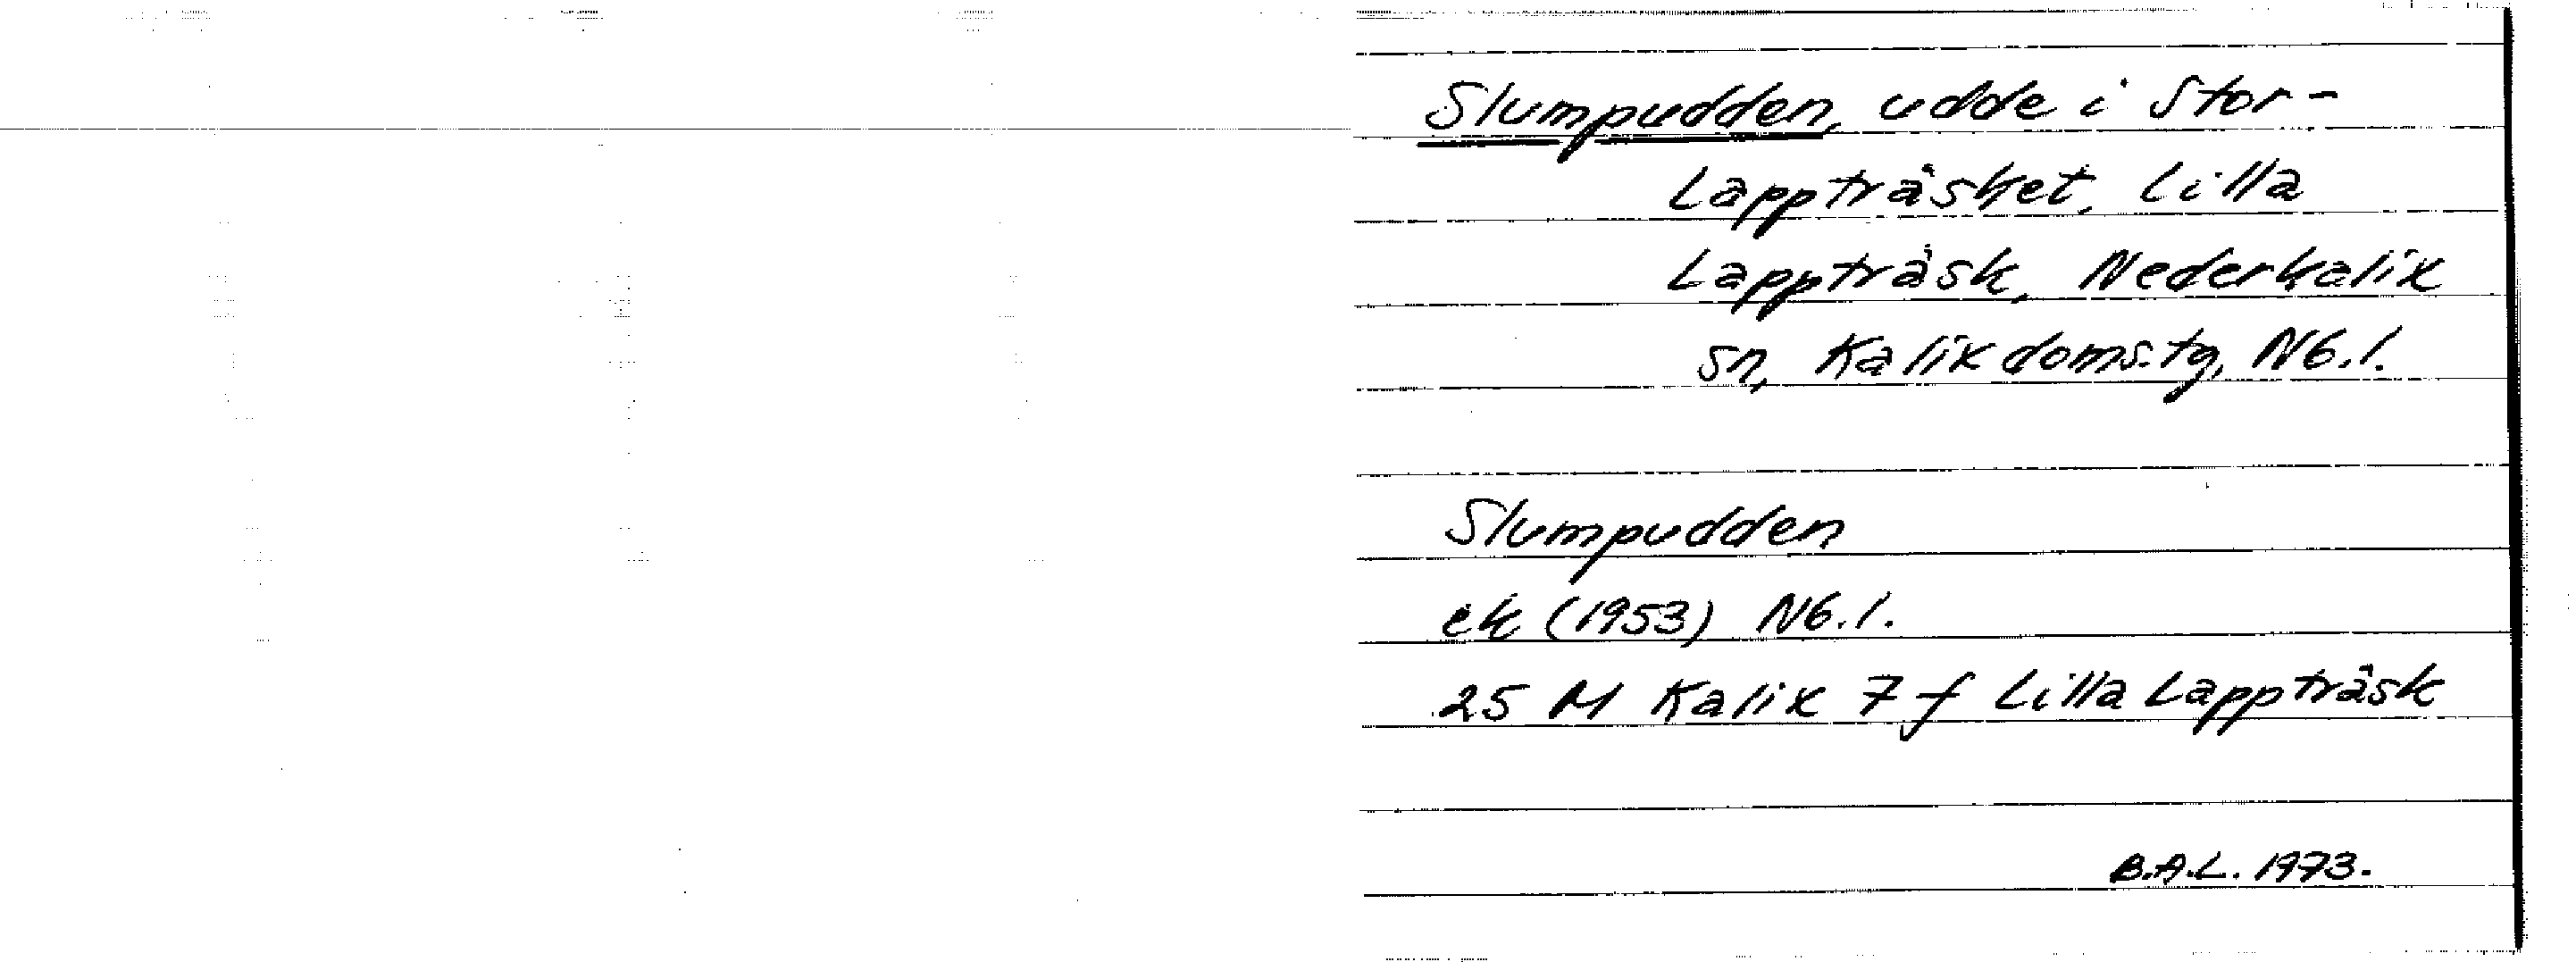 Slumpudden, udde i Stor-
Lappträsket, Lilla
Lappträsk, Nederkalix
sn, Kalix doms.tg, Nb.l.
Slumpudden
ek (1953) Nb.l.
25 M Kalix 7 f Lilla Lappträsk
B.A.L. 1973.